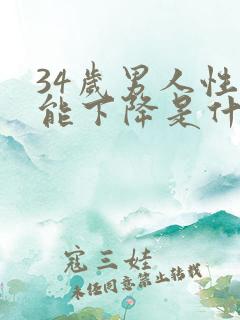 34岁男人性
能下降是什
寇三娃
未经同意禁止转载